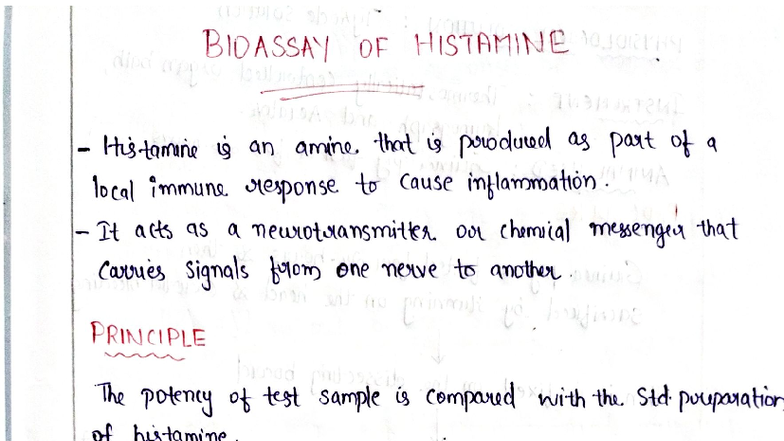 BIOASSAY OF HISTAMINE
- Histamine is an amine that is produced as part of a
local immune response to cause inflammation.
- It acts as a neurotransmitter or chemical messenger that
carries signals from one nerve to another.
PRINCIPLE
The potency of test sample is compared with the Std. preparation
of histamine.